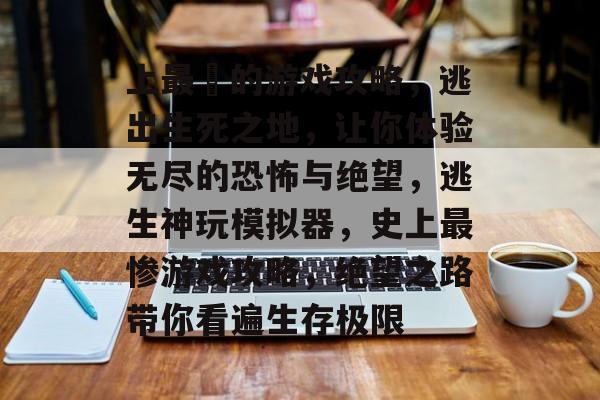 上最的游戏攻略，逃
出生死之地，让你体验
无尽的恐怖与绝望，逃
生神玩模拟器，史上最
惨游戏攻略，绝望之路
带你看遍生存极限